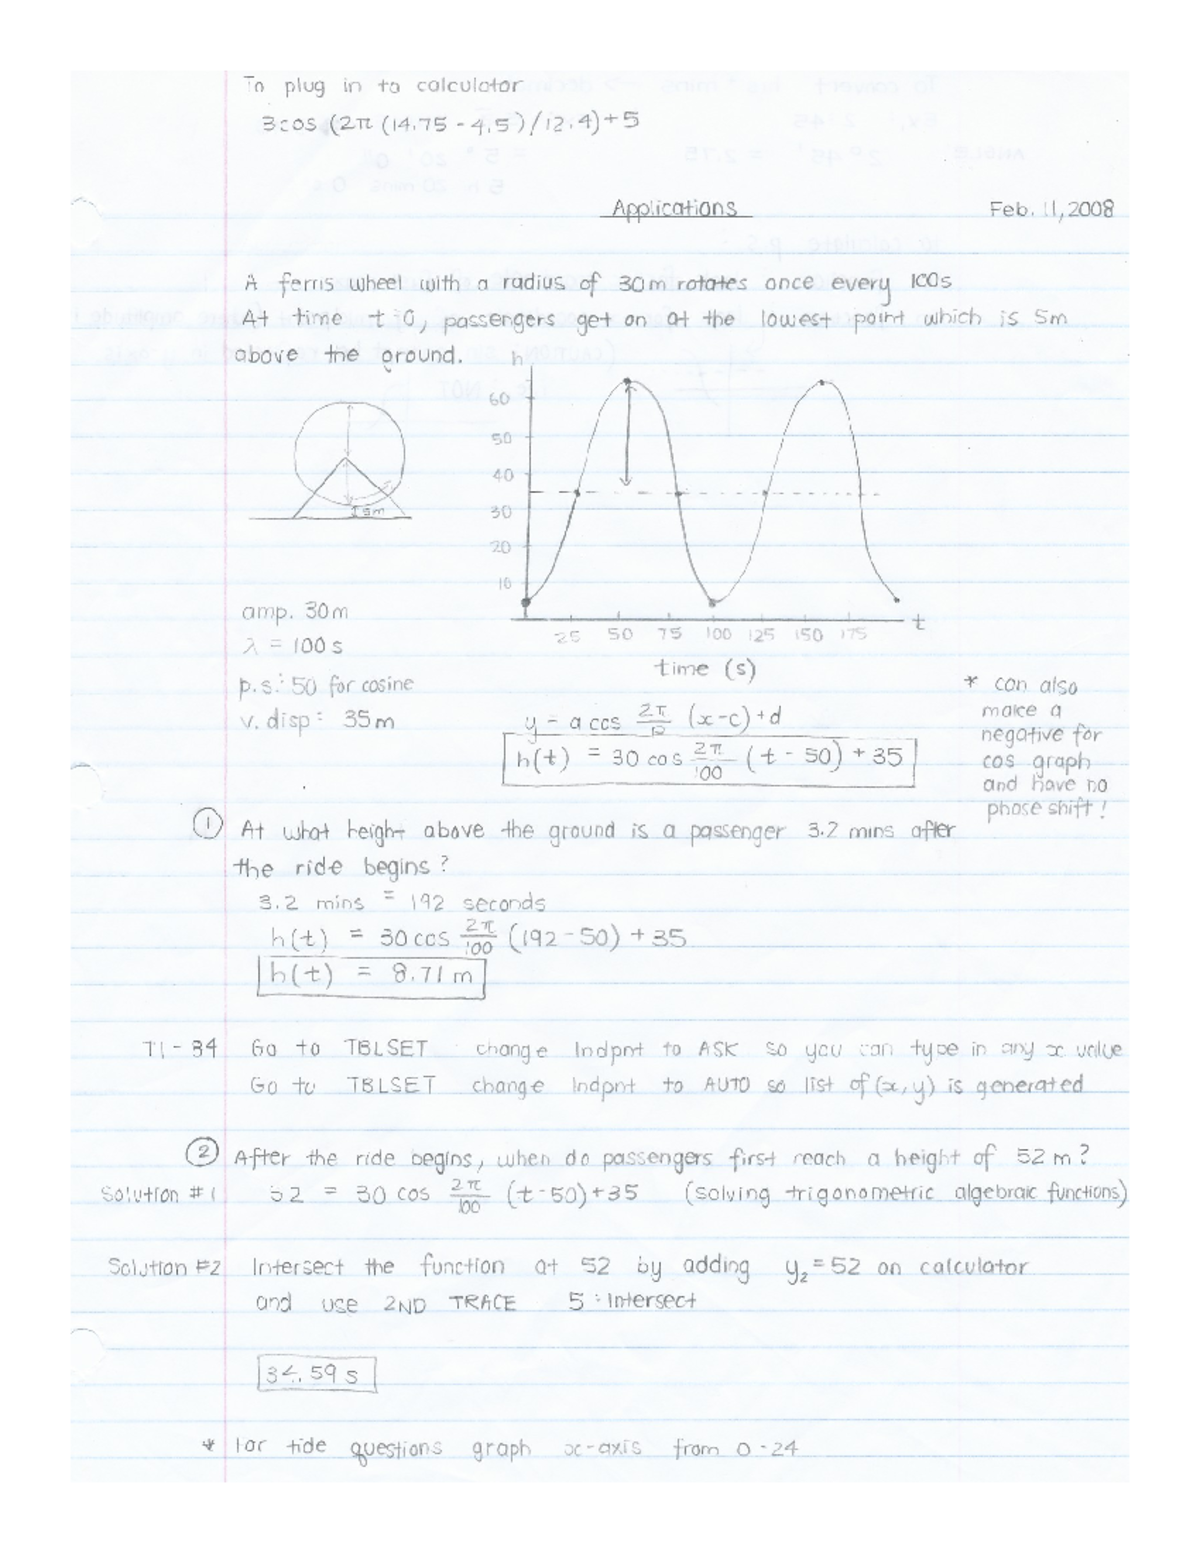 To plug in to calculator
3cos (2π (14.75 - 4.5)/12.4)+5
Applications
Feb. 11, 2008
A ferris wheel with a radius of 30m rotates once every 100s
At time t=0, passengers get on at the lowest point which is 5m
above the ground.
h
60
50
40
30
20
10
5m
25 50 75 100 125 150 175
t
time (s)
amp. 30m
λ = 100 s
p.s.: 50 for cosine
v. disp: 35m
y = a cos 2π/p (x-c)+d
h(t) = 30 cos 2π/100 (t - 50) + 35
* can also
make a
negative for
cos graph
and have no
phase shift!
① At what height above the ground is a passenger 3.2 mins after
the ride begins?
3.2 mins = 192 seconds
h(t) = 30 cos 2π/100 (192 - 50) + 35
h(t) = 8.71 m
TI - 84 Go to TBLSET change Indpnt to ASK so you can type in any x value
Go to TBLSET change Indpnt to AUTO so list of (x, y) is generated
② After the ride begins, when do passengers first reach a height of 52 m?
Solution #1 52 = 30 cos 2π/100 (t-50)+35 (solving trigonometric algebraic functions)
Solution #2 Intersect the function at 52 by adding y₂ = 52 on calculator
and use 2ND TRACE 5: Intersect
34.59 s
* For tide questions graph x-axis from 0-24